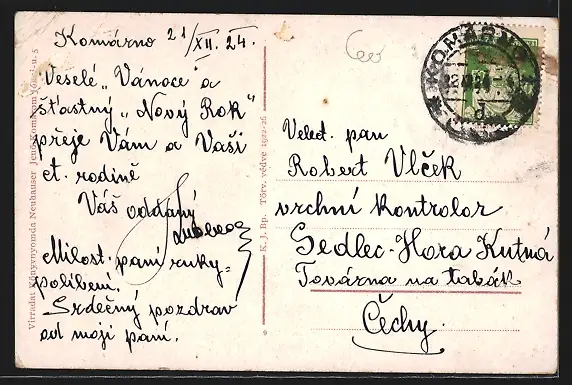 Komárno 21/XII. 24.
Veselé „Vánoce" a
šťastný „Nový Rok"
přeje Vám a Vaší
ct. rodině
Váš oddaný
Milost. paní ruky-
políbení.
Srdečný pozdrav
od mojí paní.
Veled. pan
Robert Vlček
vrchní kontrolor
Sedlec-Hora Kutná
Továrna na tabák
Čechy.
K. J. Bp. Törv. védve 1922-26
Virradat Könyvnyomda Neuhauser Jenő Komárom
9
KOMÁRNO
d